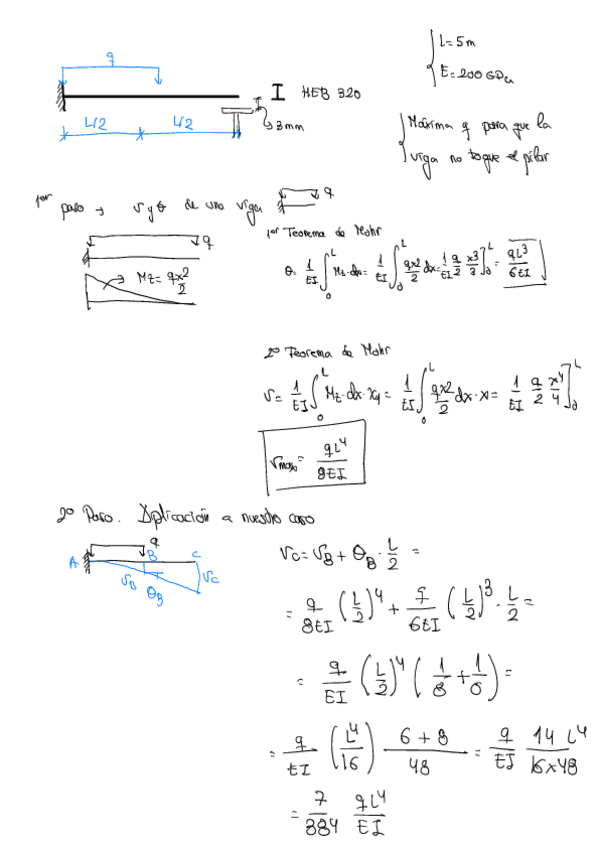 q
L/2 L/2
I HEB 320
3mm
L=5m
E=200 GPa
Máxima q para que la
viga no toque el pilar
1er paso → v y θ de una viga q
q
Mz = qx²/2
1er Teorema de Mohr
θ = 1/EI ∫₀ᴸ Mz·dx = 1/EI ∫₀ᴸ qx²/2 dx = 1/EI q/2 x³/3]₀ᴸ = qL³/6EI
2º Teorema de Mohr
v = 1/EI ∫₀ᴸ Mz·dx·x₁ = 1/EI ∫₀ᴸ qx²/2 dx·x = 1/EI q/2 x⁴/4]₀ᴸ
vmáx = qL⁴/8EI
2º Paso. Aplicación a nuestro caso
q
A B C
vB θB vC
vC = vB + θB · L/2 =
= q/8EI (L/2)⁴ + q/6EI (L/2)³ · L/2 =
= q/EI (L/2)⁴ (1/8 + 1/6) =
= q/EI (L⁴/16) 6+8/48 = q/EI 14 L⁴/16×48
= 7/384 qL⁴/EI